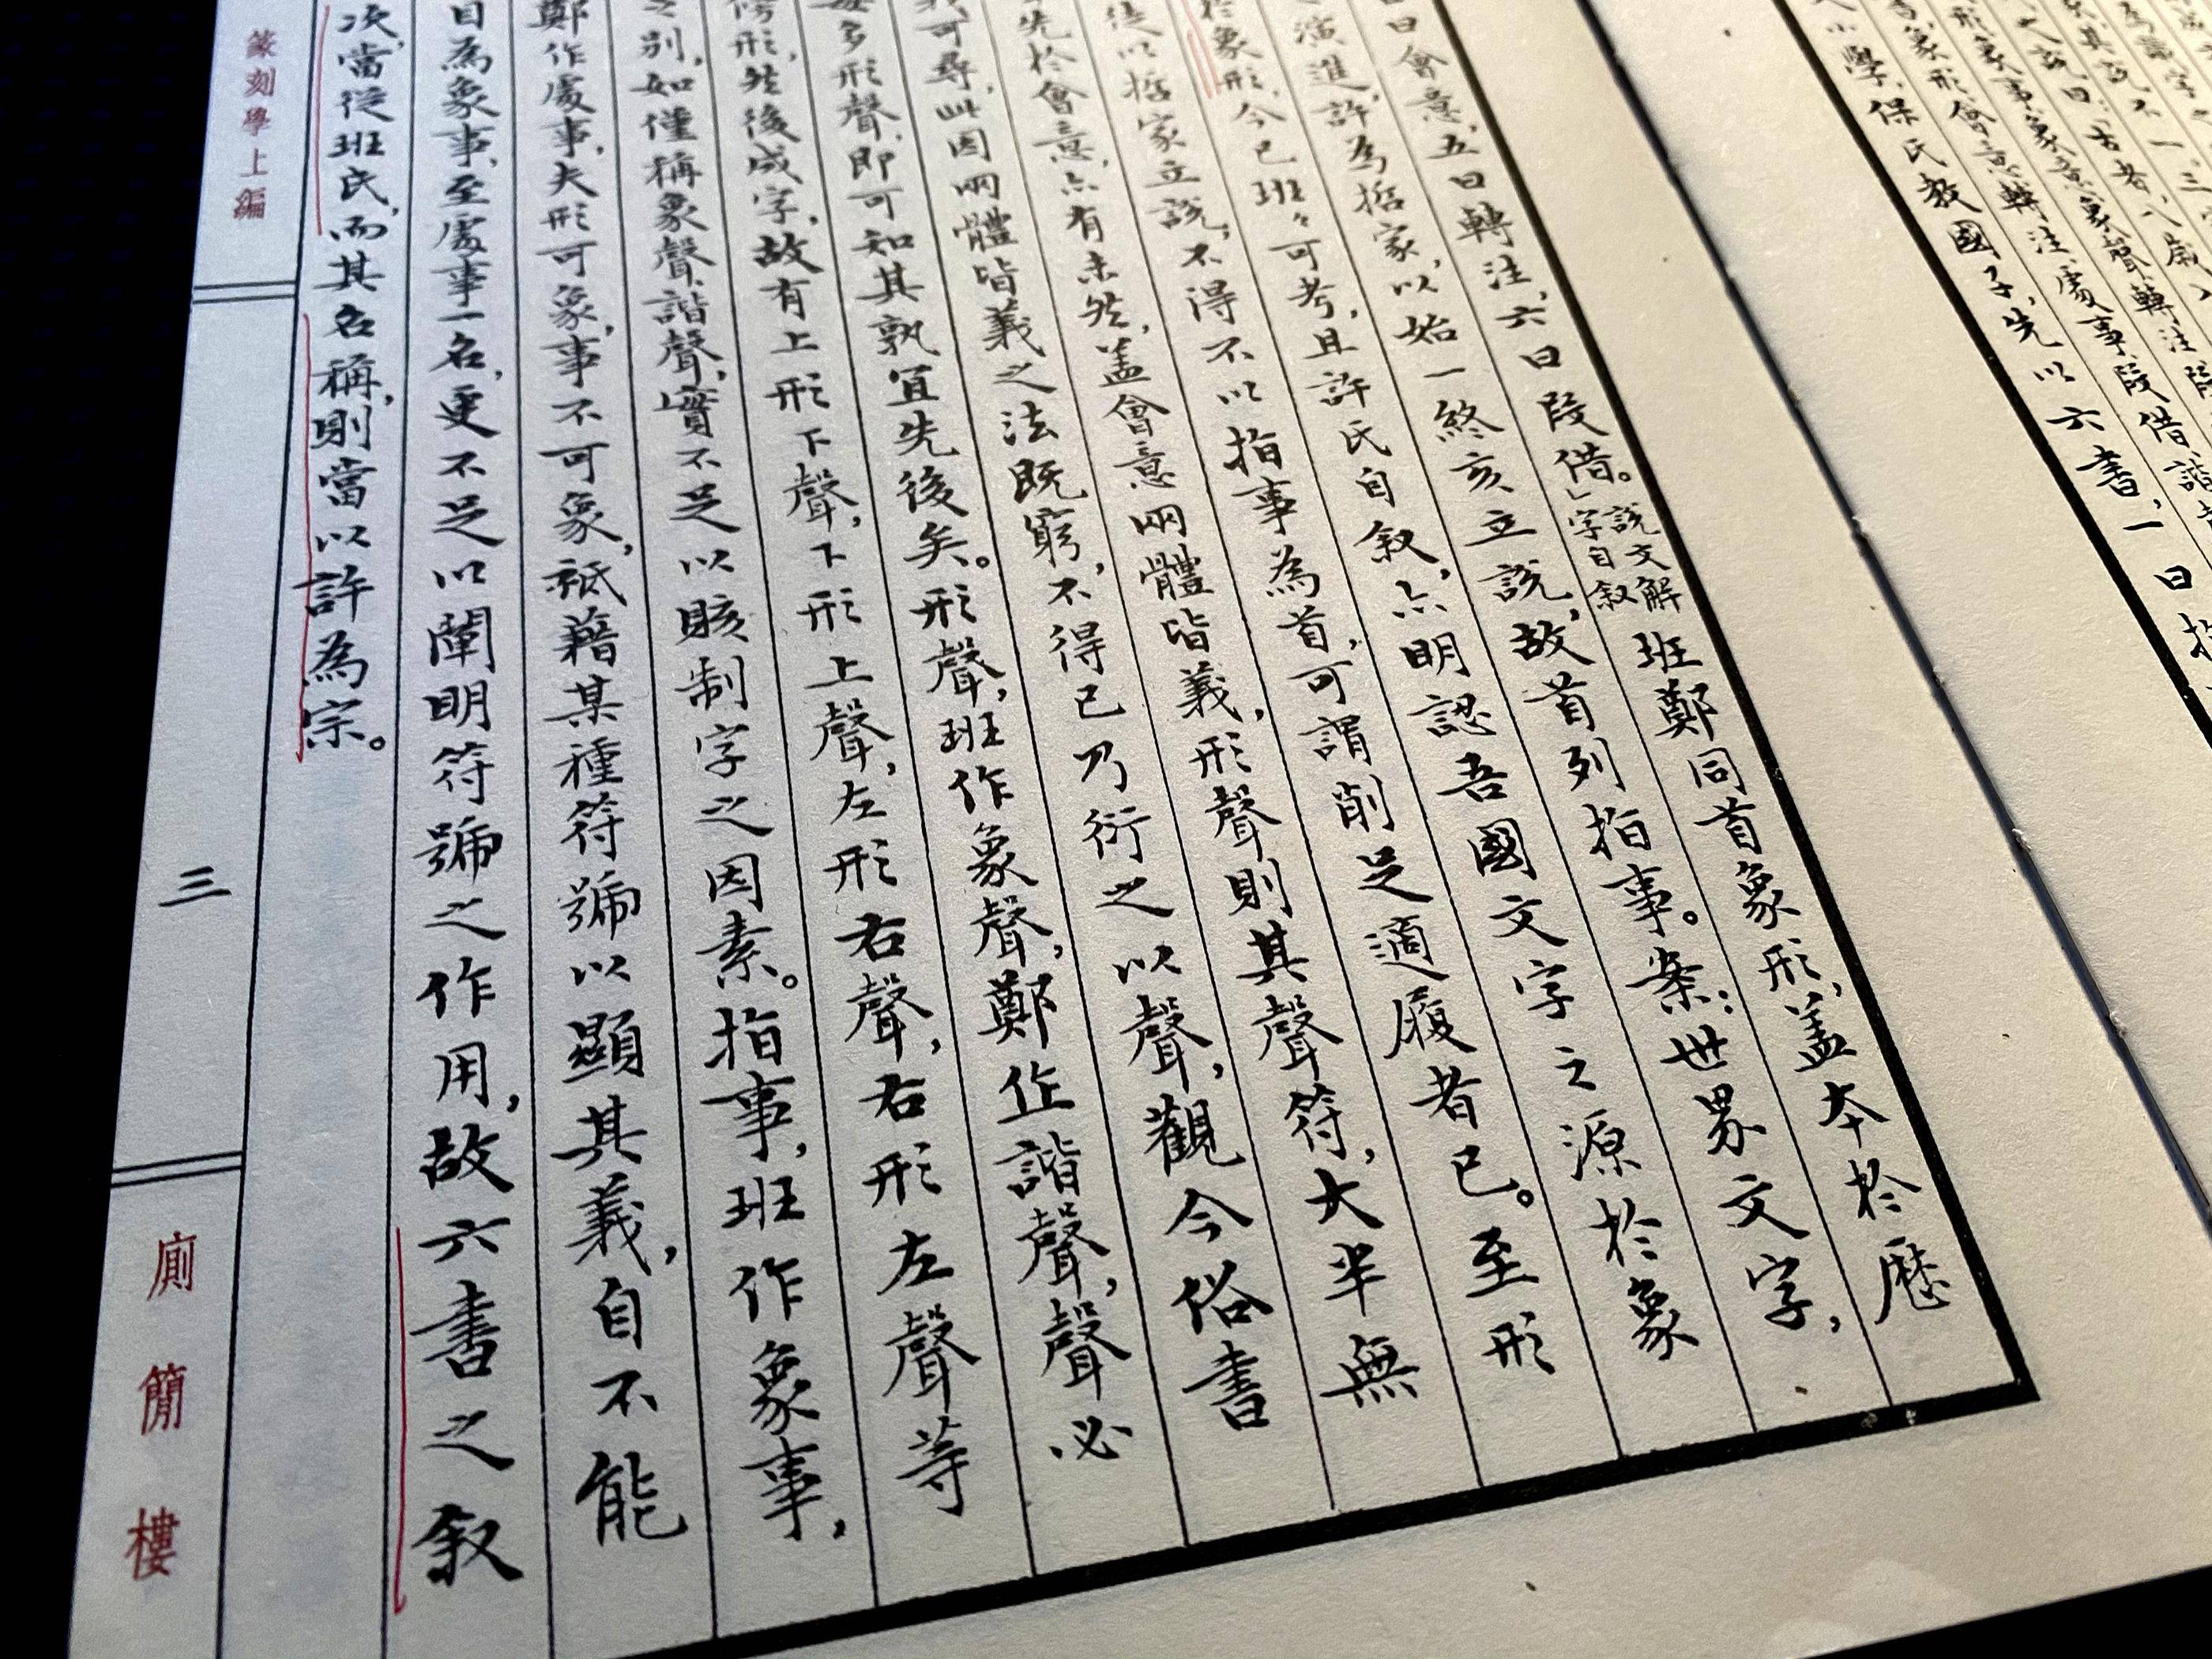 小學,保氏教國子,先以六書,一曰指
象形會意轉注處事叚借諧
形象事象意象聲轉注叚
之說曰:「古者八歲入
其說不一三
曰會意,五曰轉注,六曰叚借。」說文解字自叙班鄭同首象形,蓋本於歷
演進,許為哲家,以始一終亥立說,故首列指事。案:世界文字,
於象形,今已班々可考,且許氏自叙,亦明認吾國文字之源於象
徒以哲家立說,不得不以指事為首,可謂削足適履者已。至形
先於會意,亦有未然,蓋會意兩體皆義,形聲則其聲符,大半無
可尋,此因兩體皆義之法既窮,不得已乃衍之以聲,觀今俗書
每多形聲,即可知其孰宜先後矣。形聲,班作象聲,鄭作諧聲,聲必
傍形,然後成字,故有上形下聲,下形上聲,左形右聲,右形左聲等
之別,如僅稱象聲諧聲,實不足以賅制字之因素。指事,班作象事,
鄭作處事,夫形可象,事不可象,祇藉某種符號以顯其義,自不能
曰為象事,至處事一名,更不足以闡明符號之作用,故六書之叙
次,當從班氏,而其名稱,則當以許為宗。
篆刻學上編
三
廁簡樓